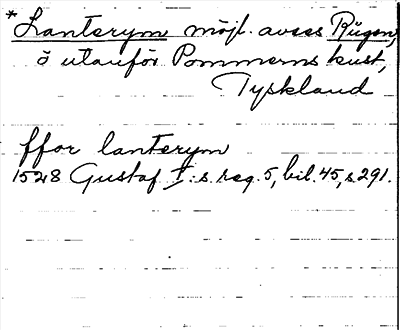 *Lanterym möjl. avses Rügen,
ö utanför Pommerns kust,
Tyskland
ffor lanterym
1528 Gustaf I:s reg. 5, bil. 45, s 291.